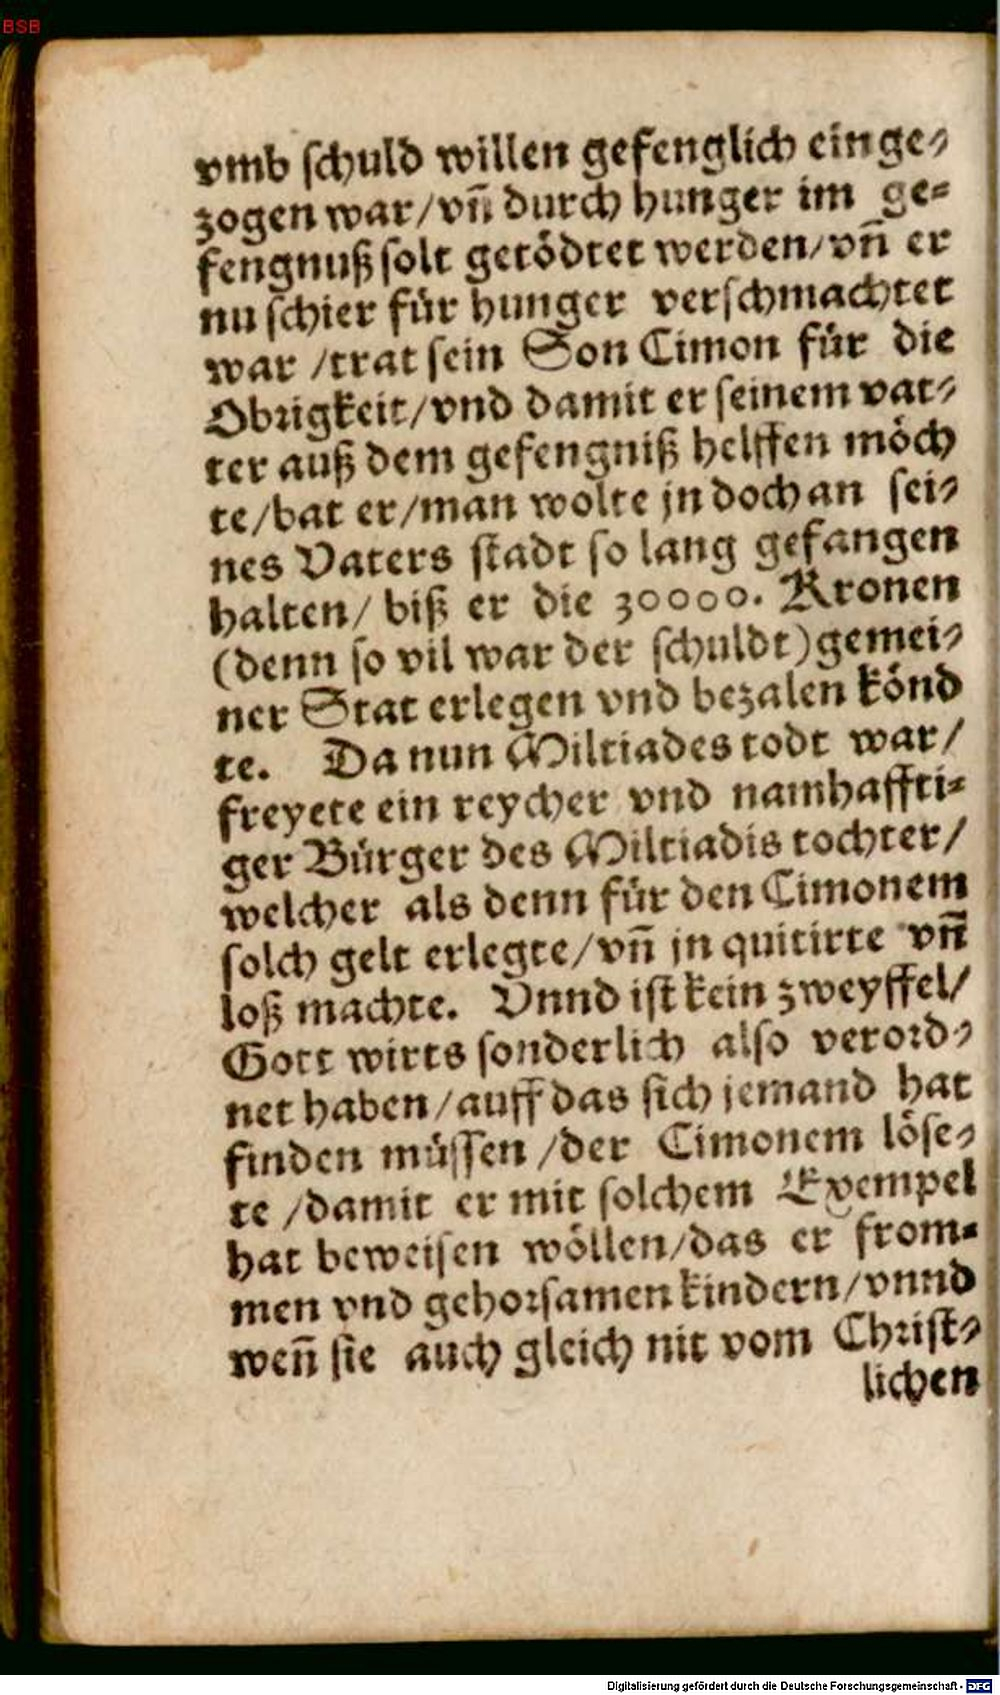 BSB
vmb schuld willen gefenglich einge⸗
zogen war/vn̄ durch hunger im ge⸗
fengnuß solt getödtet werden/vn̄ er
nu schier für hunger verschmachtet
war /trat sein Son Cimon für die
Obrigkeit/vnd damit er seinem vat⸗
ter auß dem gefengniß helffen möch
te/bat er/man wolte jn doch an sei⸗
nes Vaters stadt so lang gefangen
halten/ biß er die 30000. Kronen
(denn so vil war der schuldt)gemei⸗
ner Stat erlegen vnd bezalen könd
te. Da nun Miltiades todt war/
freyete ein reycher vnd namhaffti⸗
ger Bürger des Miltiadis tochter/
welcher als denn für den Cimonem
solch gelt erlegte/vn̄ jn quitirte vn̄
loß machte. Vnnd ist kein zweyffel/
Gott wirts sonderlich also verord⸗
net haben/auff das sich jemand hat
finden müssen /der Cimonem löse⸗
te /damit er mit solchem Exempel
hat beweisen wöllen/das er from⸗
men vnd gehorsamen kindern/vnnd
wen̄ sie auch gleich nit vom Christ⸗
lichen
Digitalisierung gefördert durch die Deutsche Forschungsgemeinschaft - DFG